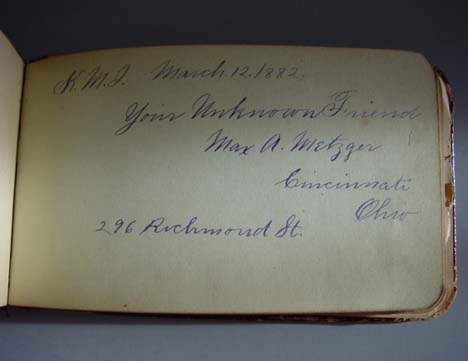 K.M.I. March.12.1882.
Your Unknown Friend
Max A. Metzger
Cincinnati
Ohio
296 Richmond St.